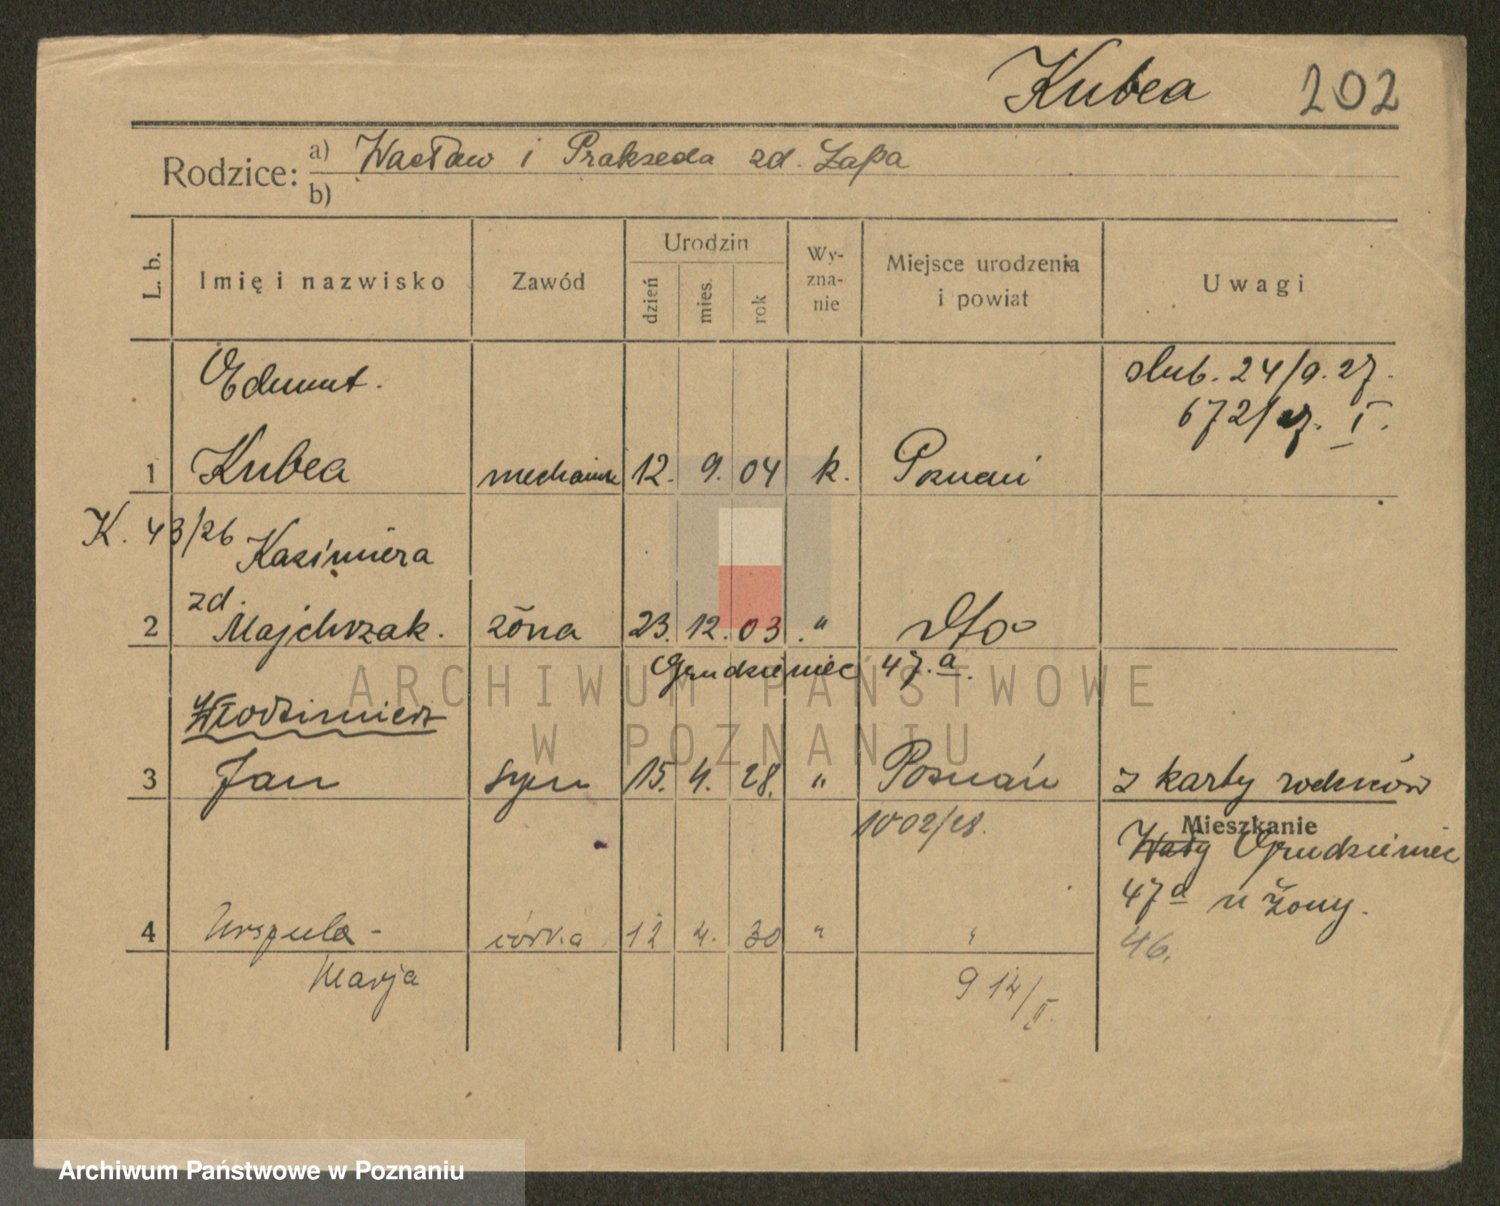 Kubea 202
Rodzice: a) Wacław i Prakseda zd. Łapa
b)
L. b. Imię i nazwisko Zawód Urodzin dzień mies. rok Wy-zna-nie Miejsce urodzenia i powiat Uwagi
Edmunt. ślub. 24/9. 27.
672/27. I.
1 Kubea mechanik 12. 9. 04 k. Poznań
K. 43/26 Kazimiera
zd.
2 Majchrzak. żona 23. 12. 03. " dto
Grudzieniec 47.a.
Włodzimierz
3 Jan syn 15. 4. 28. " Poznań z karty rodziców
1002/28. Mieszkanie
Wały Grudzieniec
47a u żony.
4 Urszula - córka 12 4. 30 " "
46.
Marja 914/II.
ARCHIWUM PAŃSTWOWE
W POZNANIU
Archiwum Państwowe w Poznaniu